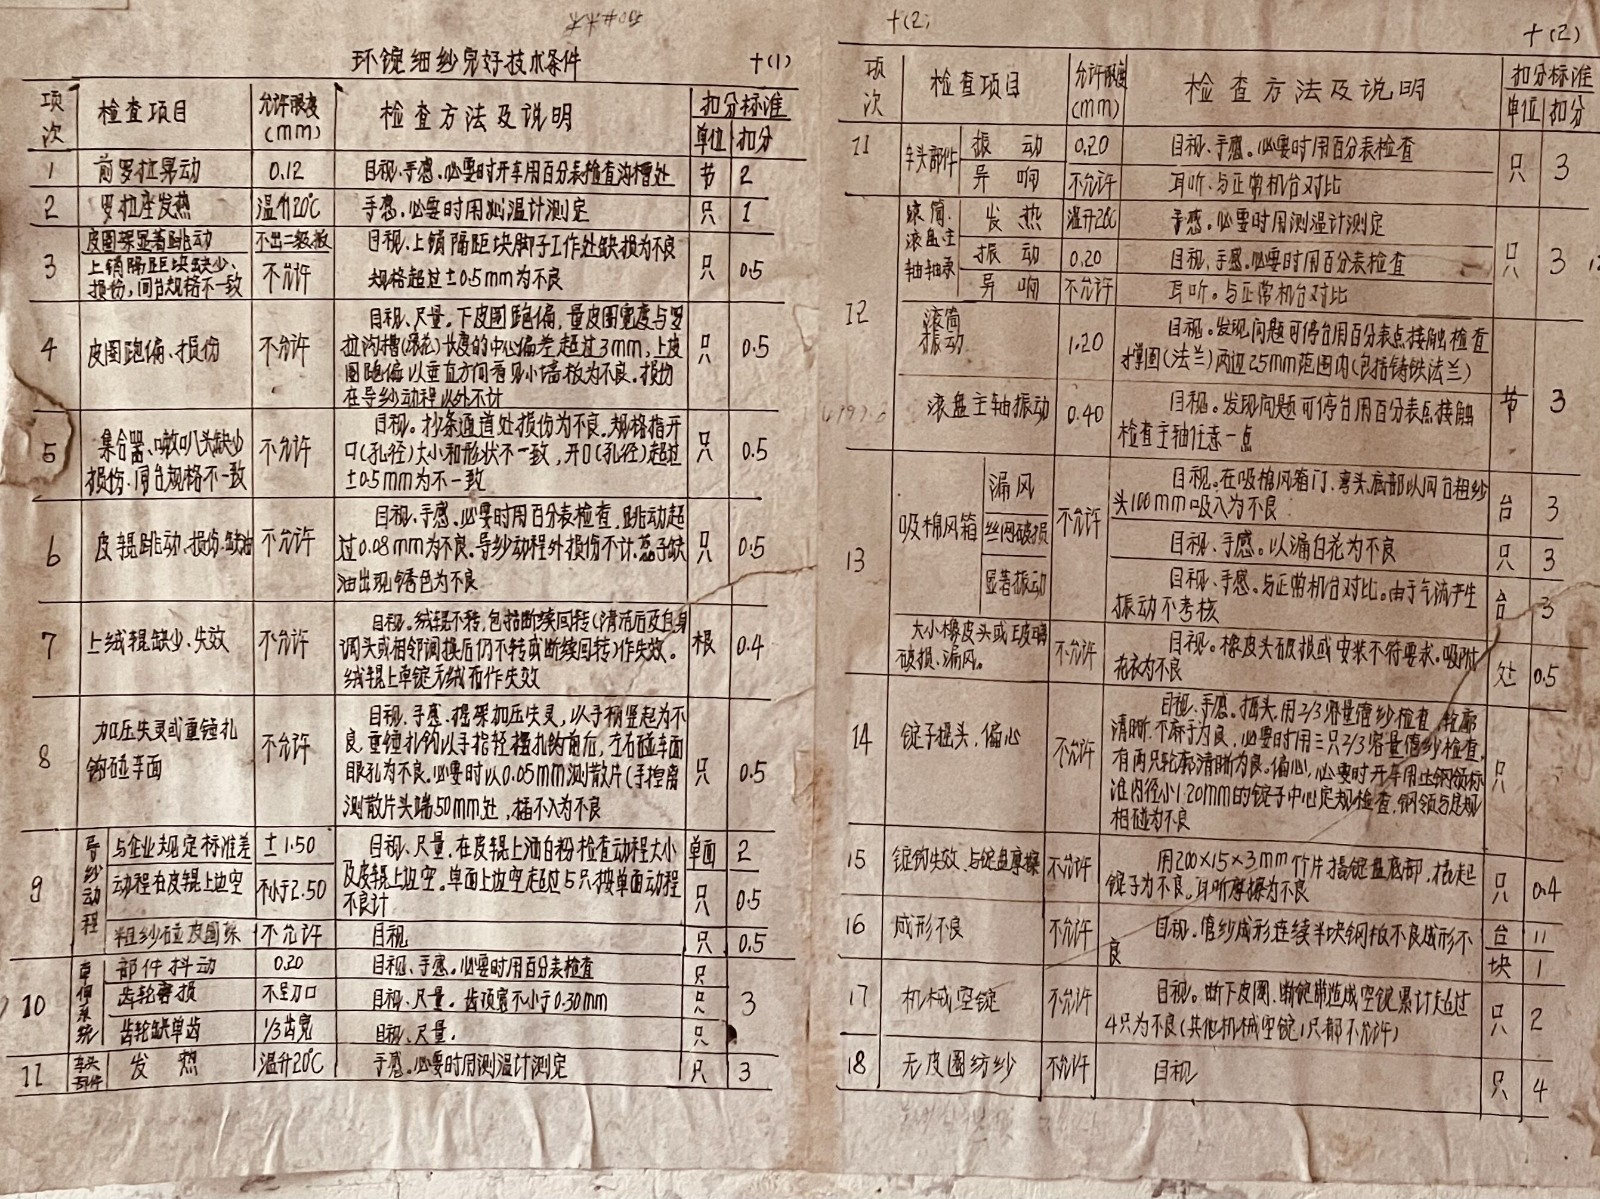 环锭细纱完好技术条件 十(1)
项次 检查项目 允许限度(mm) 检查方法及说明 扣分标准
单位 扣分
1 前罗拉晃动 0.12 目视、手感。必要时开车用百分表检查沟槽处 节 2
2 罗拉座发热 温升20℃ 手感。必要时用测温计测定 只 1
3 皮圈架显著跳动 不出二级板 目视。上销隔距块脚子工作处缺损为不良 只 0.5
上销隔距块缺少、 不允许 规格超过±0.5mm为不良
损伤,同台规格不一致
4 皮圈跑偏、损伤 不允许 目视、尺量。下皮圈跑偏,量皮圈宽度与罗 只 0.5
拉沟槽(滚花)长度的中心偏差超过3mm,上皮
圈跑偏以垂直方向看见小墙板为不良。损伤
在导纱动程以外不计
5 集合器、喇叭头缺少 不允许 目视。纱条通道处损伤为不良。规格指开 只 0.5
损伤、同台规格不一致 口(孔径)大小和形状不一致,开口(孔径)超过
±0.5mm为不一致
6 皮辊跳动、损伤、缺油 不允许 目视、手感。必要时用百分表检查,跳动超 只 0.5
过0.08mm为不良。导纱动程外损伤不计。芯子缺
油出现锈色为不良
7 上绒辊缺少、失效 不允许 目视。绒辊不转,包括断续回转(清洁后及自身 根 0.4
调头或相邻调换后仍不转或断续回转)作失效。
绒辊上单锭无绒布作失效
8 加压失灵或重锤扎 不允许 目视、手感。摇架加压失灵,以手柄竖起为不 只 0.5
钩碰车面 良。重锤扎钩以手指轻摆扎钩前后,左右碰车面
眼孔为不良。必要时以0.05mm测散片(手捏离
测散片头端50mm处,插不入为不良
9 导纱动程 与企业规定标准差 ±1.50 目视、尺量。在皮辊上洒白粉检查动程大小 单面 2
动程在皮辊上边空 不小于2.50 及皮辊上边空。单面上边空超过5只按单面动程 只 0.5
不良计
粗纱碰皮圈架 不允许 目视 只 0.5
10 牵伸系统 部件抖动 0.20 目视、手感。必要时用百分表检查 只 3
齿轮磨损 不呈刀口 目视、尺量。齿顶宽不小于0.30mm 只
齿轮缺单齿 1/3齿宽 目视、尺量。 只
11 车头部件 发热 温升20℃ 手感。必要时用测温计测定 只 3
十(2)
十(2)
项次 检查项目 允许限度(mm) 检查方法及说明 扣分标准
单位 扣分
11 车头部件 振动 0.20 目视、手感。必要时用百分表检查 只 3
异响 不允许 耳听、与正常机台对比
12 滚筒、滚盘主轴轴承 发热 温升20℃ 手感。必要时用测温计测定 只 3
振动 0.20 目视、手感。必要时用百分表检查
异响 不允许 耳听。与正常机台对比
滚筒振动 1.20 目视。发现问题可停台用百分表点接触检查 节 3
撑圈(法兰)两边25mm范围内(包括铸铁法兰)
滚盘主轴振动 0.40 目视。发现问题可停台用百分表点接触
检查主轴任意一点
13 吸棉风箱 漏风 不允许 目视。在吸棉风箱门、弯头底部以同台粗纱 台 3
头100mm吸入为不良
丝网破损 目视、手感。以漏白花为不良 只 3
显著振动 目视、手感。与正常机台对比。由于气流产生 台 3
振动不考核
大小橡皮头或玻璃 不允许 目视。橡皮头破损或安装不符要求。吸附 处 0.5
破损、漏风。 花衣为不良
14 锭子摇头、偏心 不允许 目视、手感。摇头,用2/3容量管纱检查,轮廓 只
清晰,不麻手为良,必要时用三只2/3容量管纱检查,
有两只轮廓清晰为良。偏心,必要时开车用比钢领标
准内径小1.20mm的锭子中心定规检查,钢领与定规
相碰为不良
15 锭钩失效、与锭盘摩擦 不允许 用200×15×3mm竹片撬锭盘底部,拔起 只 0.4
锭子为不良。耳听摩擦为不良
16 成形不良 不允许 目视。管纱成形连续半块钢板不良成形不 台 11
良 块 1
17 机械空锭 不允许 目视。断下皮圈、断锭带造成空锭累计超过 只 2
4只为不良(其他机械空锭1只都不允许)
18 无皮圈纺纱 不允许 目视 只 4